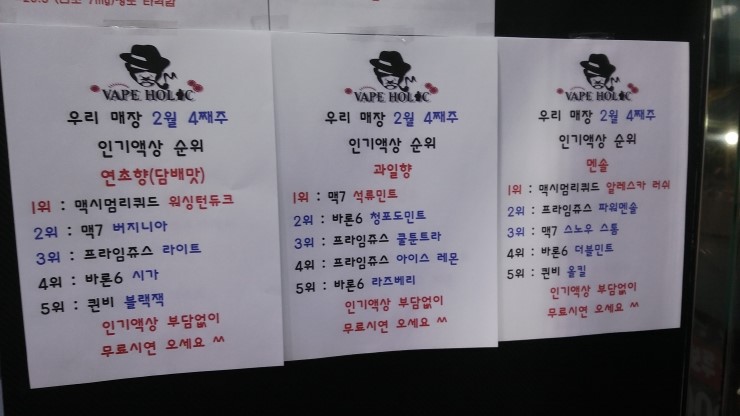 VAPE HOLIC
우리 매장 2월 4째주
인기액상 순위
연초향(담배맛)
1위 : 맥시멈리쿼드 워싱턴듀크
2위 : 맥7 버지니아
3위 : 프라임쥬스 라이트
4위 : 바론6 시가
5위 : 퀸비 블랙잭
인기액상 부담없이
무료시연 오세요 ^^
VAPE HOLIC
우리 매장 2월 4째주
인기액상 순위
과일향
1위 : 맥7 석류민트
2위 : 바론6 청포도민트
3위 : 프라임쥬스 쿨툰트라
4위 : 프라임쥬스 아이스 레몬
5위 : 바론6 라즈베리
인기액상 부담없이
무료시연 오세요 ^^
VAPE HOLIC
우리 매장 2월 4째주
인기액상 순위
멘솔
1위 : 맥시멈리쿼드 알레스카 러쉬
2위 : 프라임쥬스 파워멘솔
3위 : 맥7 스노우 스톰
4위 : 바론6 더블민트
5위 : 퀸비 올킬
인기액상 부담없이
무료시연 오세요 ^^